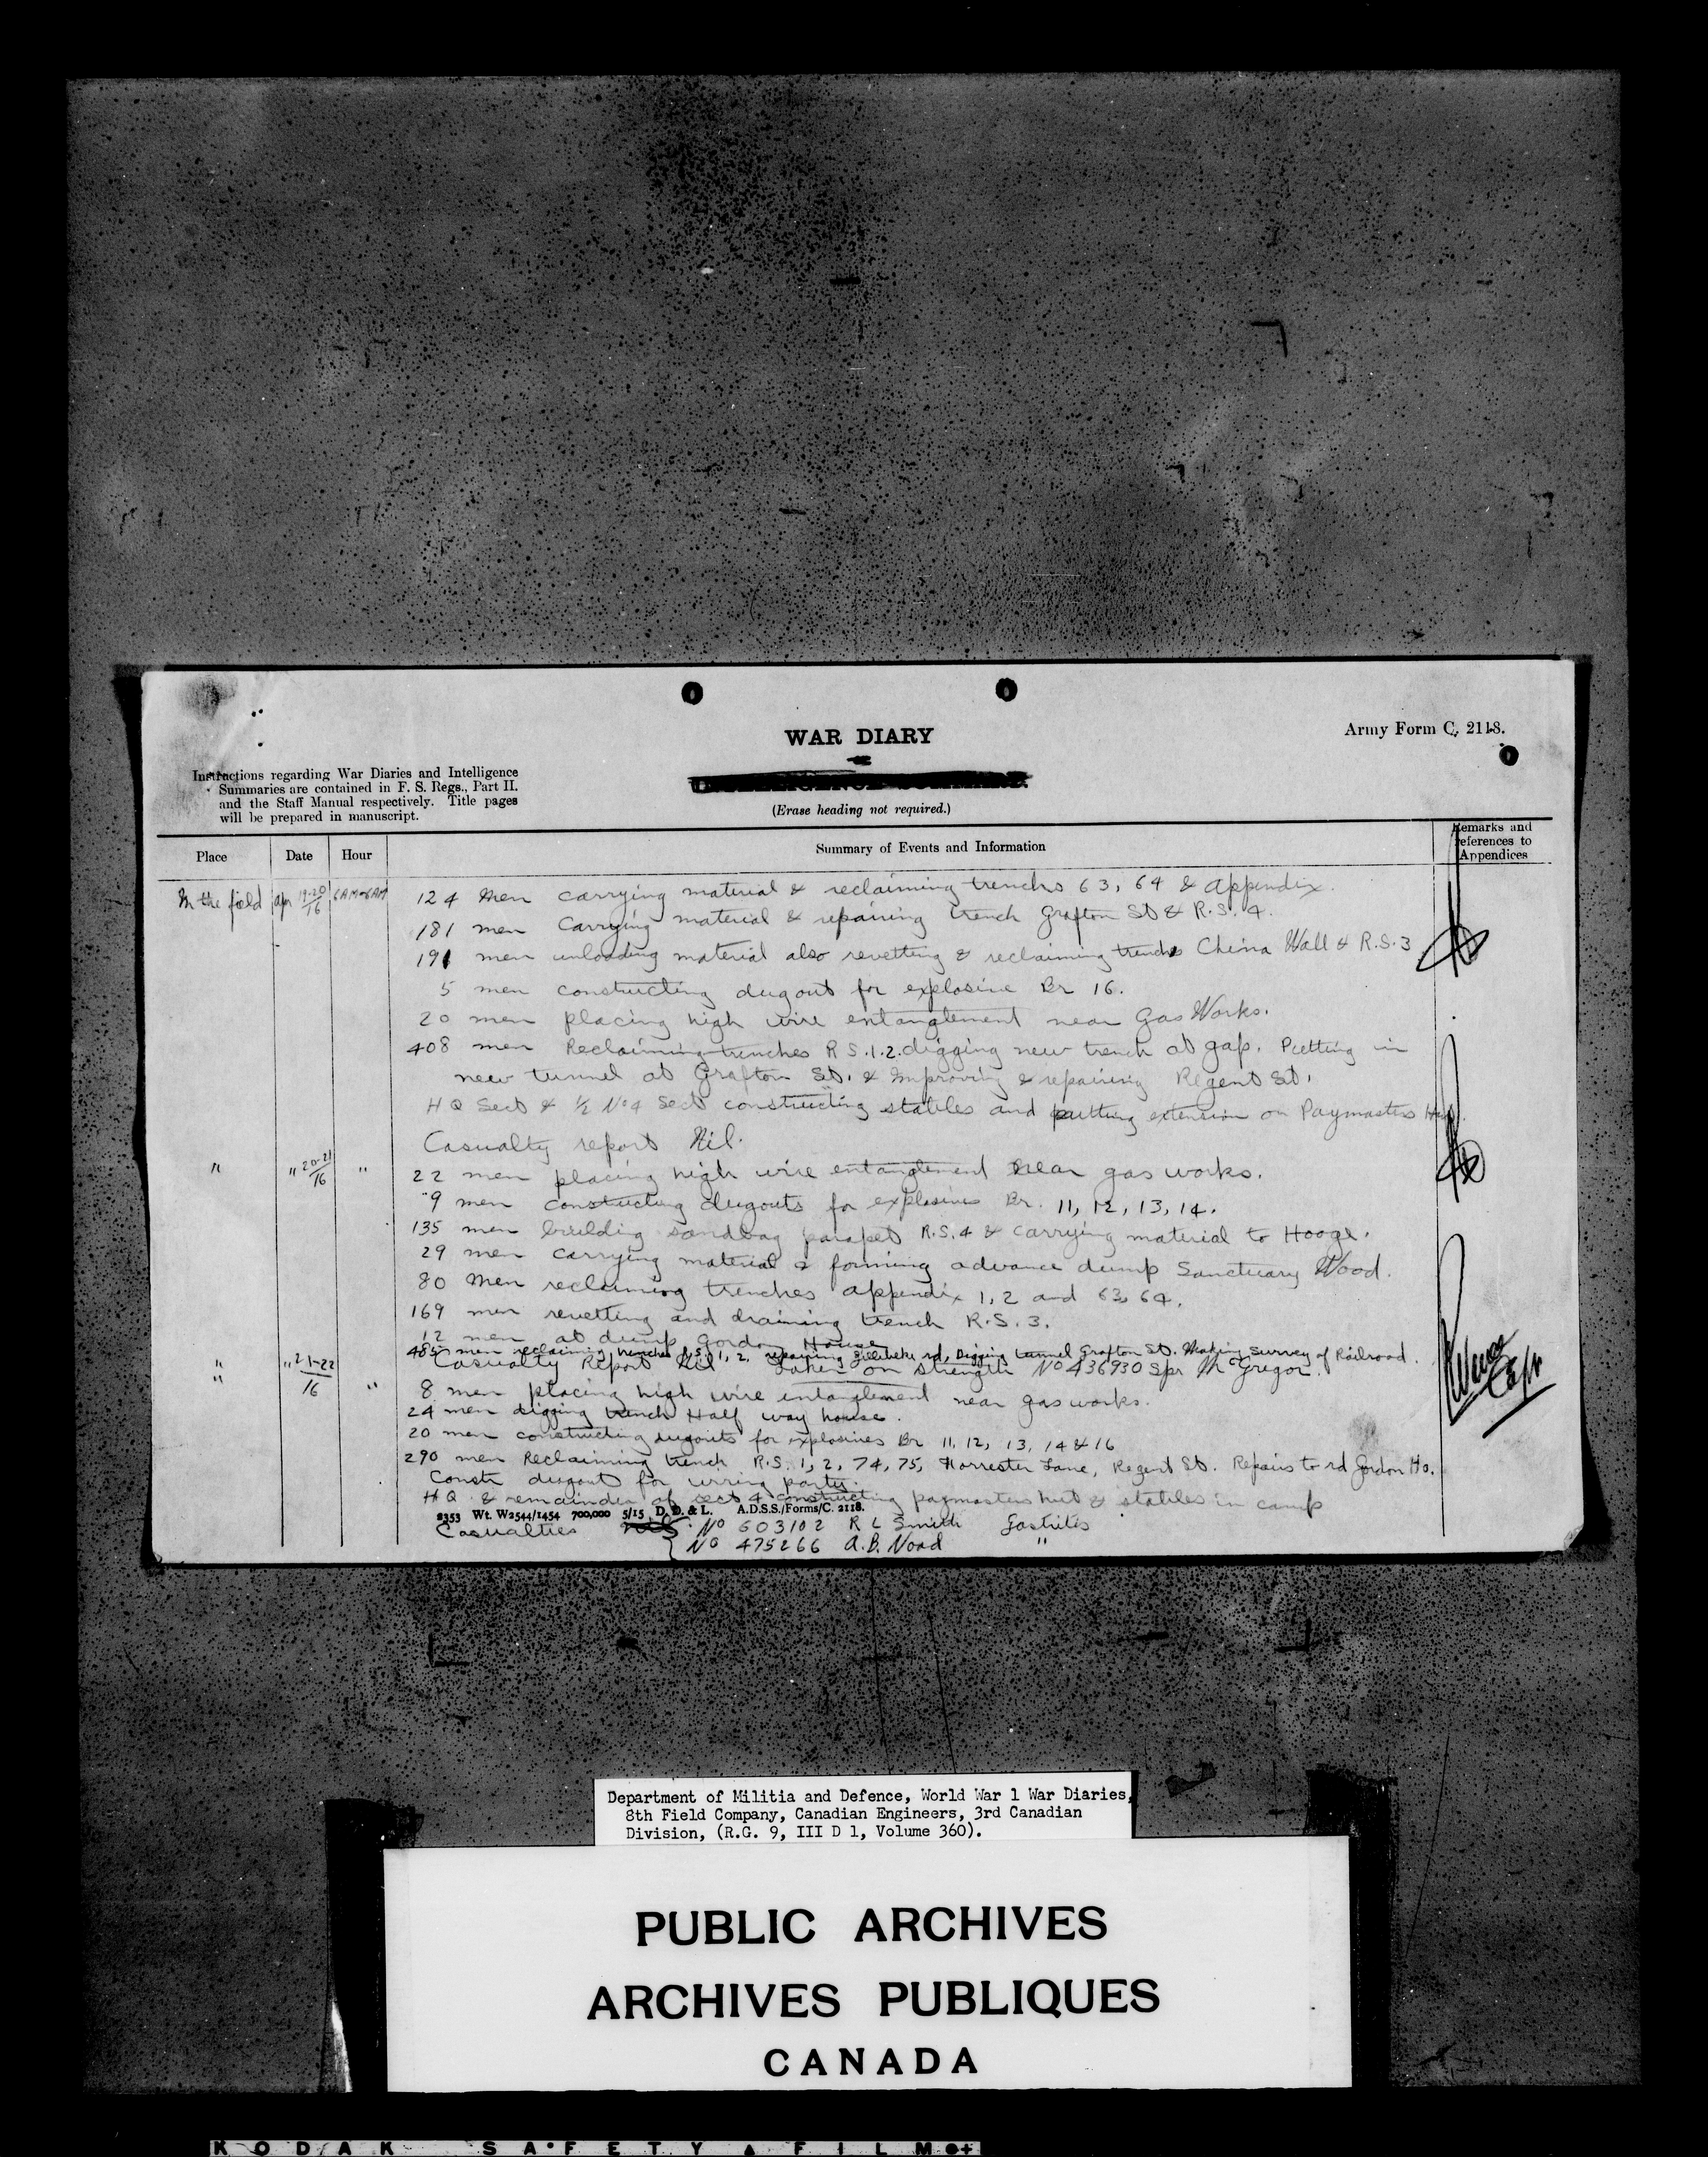 WAR DIARY
Army Form C. 2118.
Instructions regarding War Diaries and Intelligence
Summaries are contained in F. S. Regs., Part II.
and the Staff Manual respectively. Title pages
will be prepared in manuscript.
(Erase heading not required.)
Place Date Hour Summary of Events and Information Remarks and references to Appendices
In the field apr 19-20/16 6AM-6AM 124 Men carrying material & reclaiming trenchs 63, 64 & appendix.
181 men Carrying material & repairing trench Grafton St & R.S. 4.
191 men unloading material also revetting & reclaiming trenchs China Wall & R.S.3
5 men constructing dugout for explosive Br 16.
20 men placing high wire entanglement near Gas Works.
408 men Reclaiming trenches R S.1.2. digging new trench at gap. Putting in
new tunnel at Grafton St. & Improving & repairing Regent St.
H Q Sect & ½ No 4 Sect constructing stables and putting extension on Paymasters Hut.
Casualty report Nil.
" " 20-21/16 " 22 men placing high wire entanglement near gas works.
9 men constructing dugouts for explosives Br. 11, 12, 13, 14.
135 men building sandbag parapet R.S. 4 & carrying material to Hooge.
29 men carrying material & forming advance dump Sanctuary Wood.
80 Men reclaiming trenches appendix 1, 2 and 63, 64.
169 men revetting and draining trench R.S. 3.
12 men at dump Gordon House
485 men reclaiming trenches R.S. 1, 2, repairing Zillebeke rd, Digging tunnel Grafton St. Making survey of Railroad.
" Casualty Report Nil Taken on strength No 436930 Spr McGregor.
" " 21-22/16 " 8 men placing high wire entanglement near gas works.
24 men digging trench Half way house.
20 men constructing dugouts for explosives Br 11, 12, 13, 14 & 16
290 men Reclaiming trench R.S. 1, 2, 74, 75, Forrester Lane, Regent St. Repairs to rd Gordon Ho.
Constr dugout for wiring party.
H Q & remainder of sect 4 constructing paymasters hut & stables in camp
2353 Wt. W2544/1454 700,000 5/15 D. D. & L. A.D.S.S./Forms/C. 2118.
Casualties No 603102 R L Smith Gastritis
No 475266 A.B. Nord "
Department of Militia and Defence, World War 1 War Diaries,
8th Field Company, Canadian Engineers, 3rd Canadian
Division, (R.G. 9, III D 1, Volume 360).
PUBLIC ARCHIVES
ARCHIVES PUBLIQUES
CANADA
KODAK SAFETY FILM